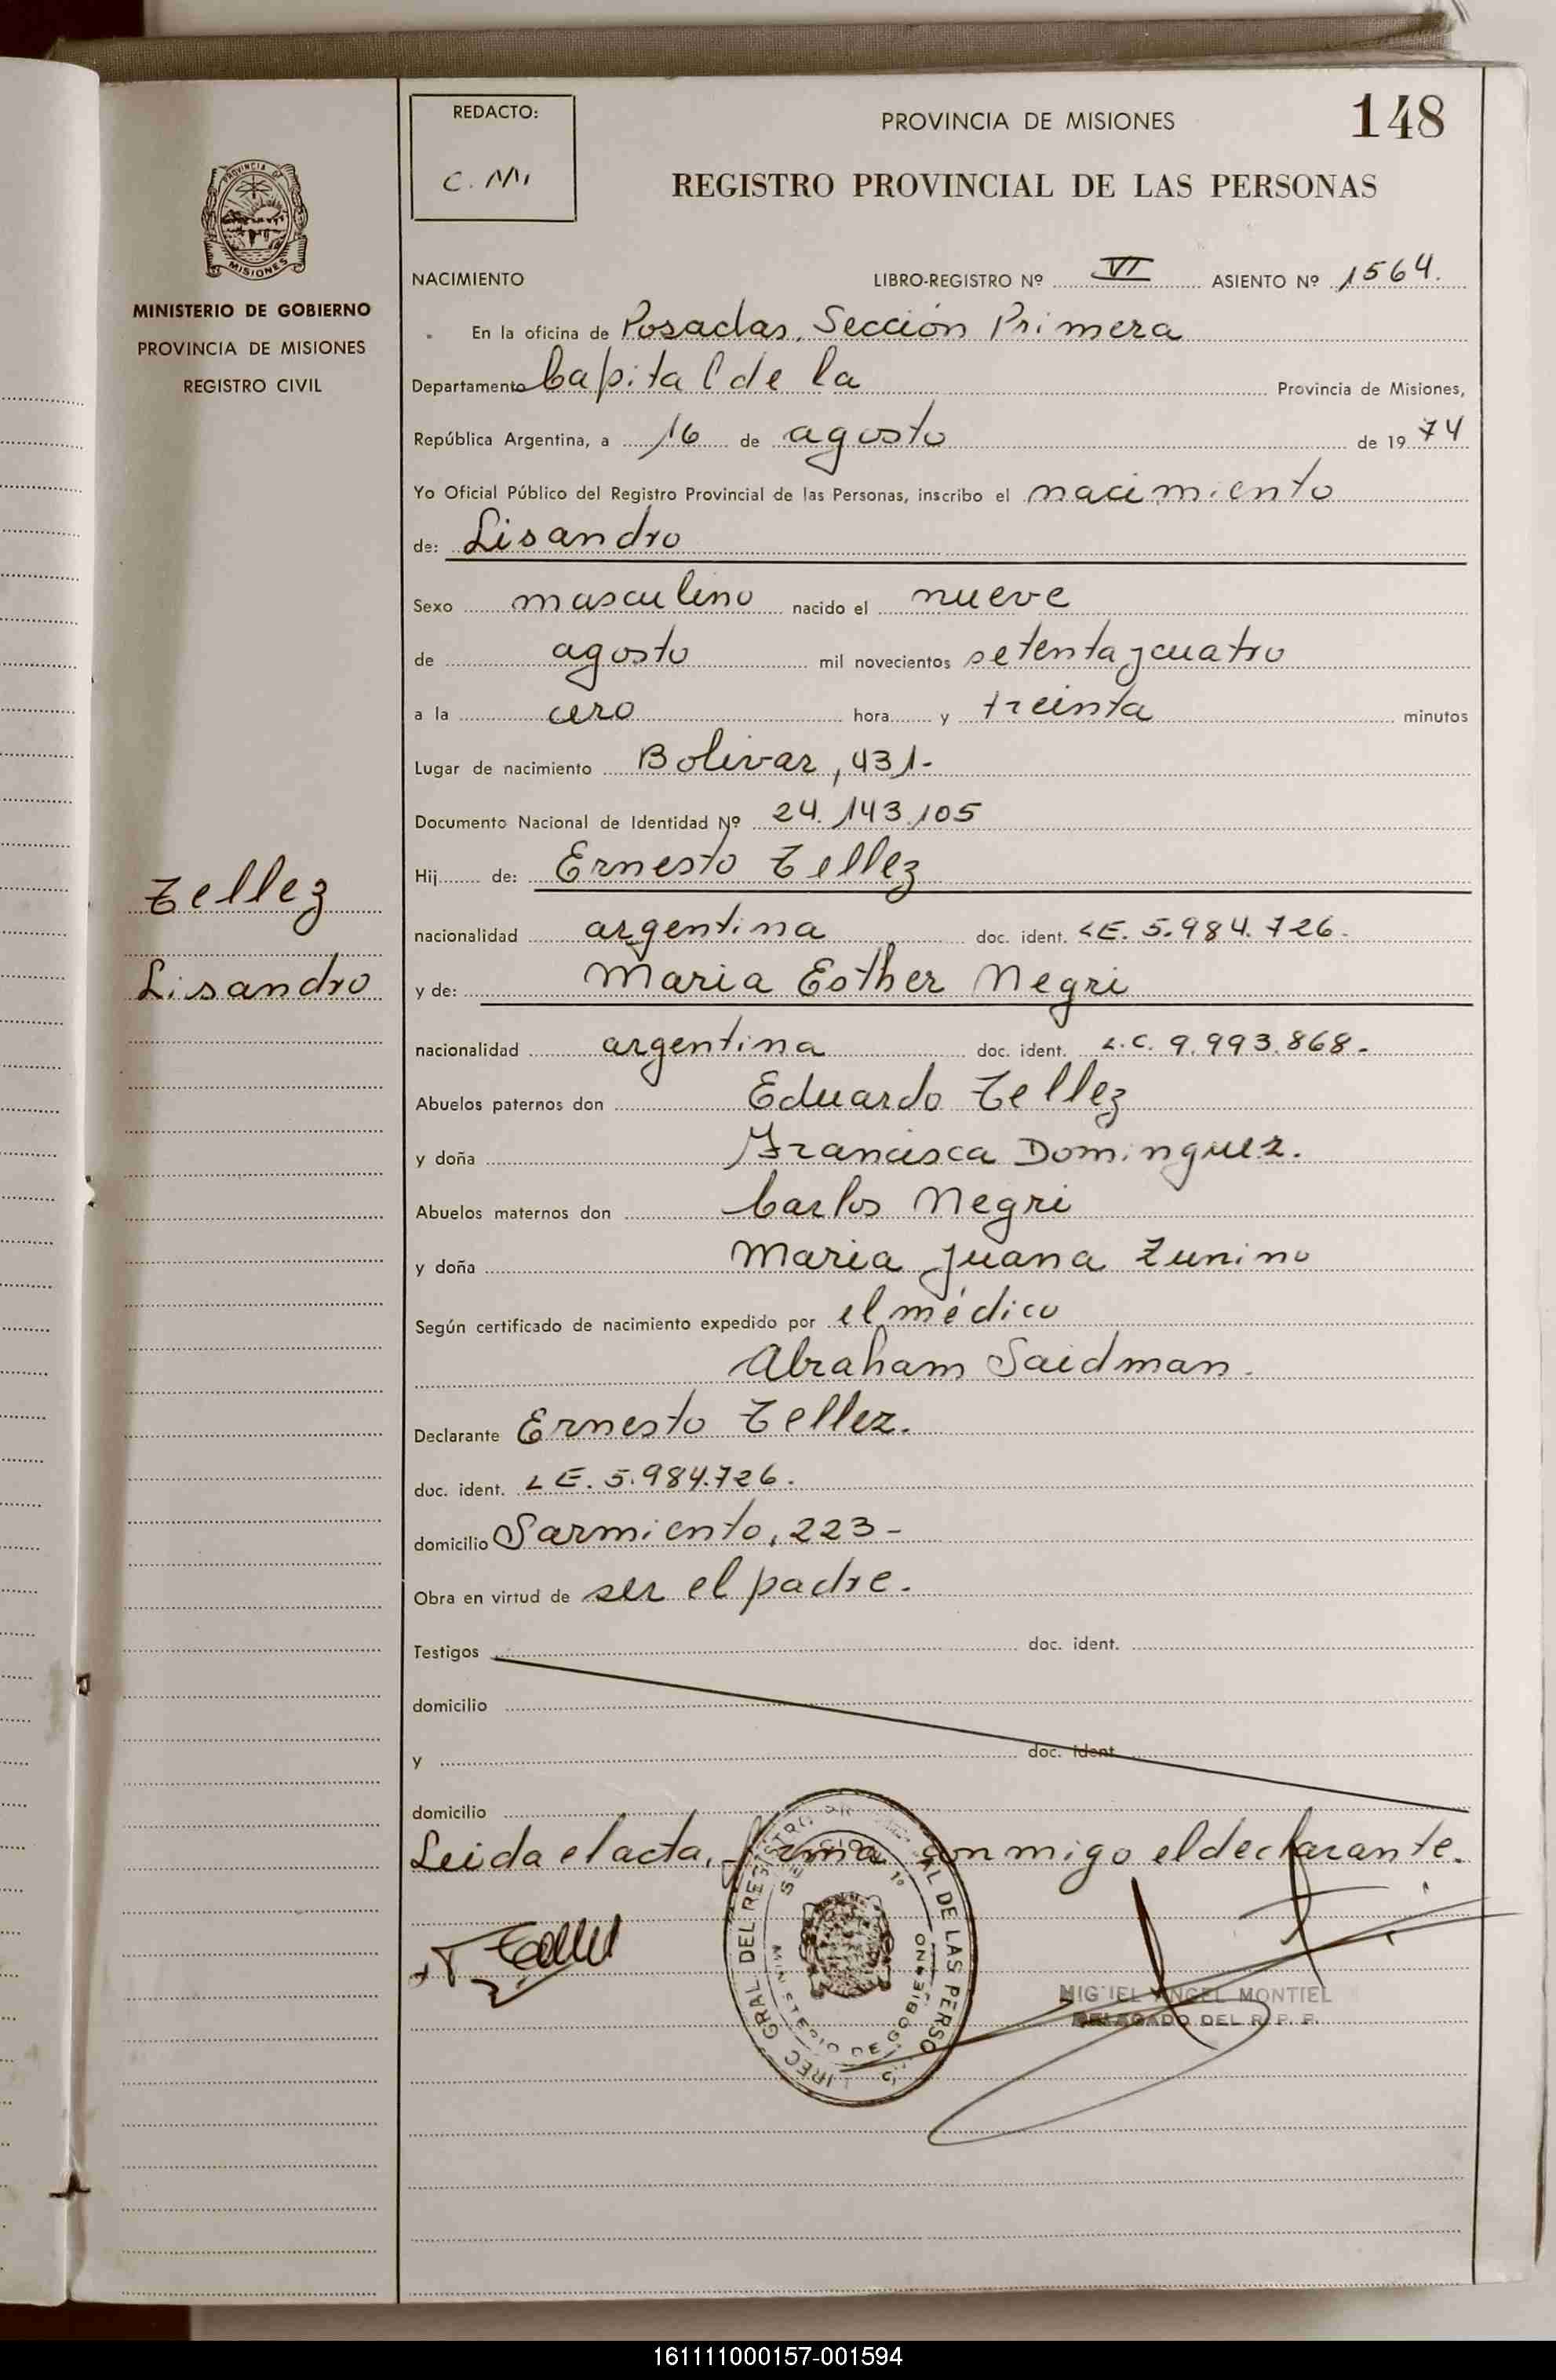 148
REDACTO:
C. M.
PROVINCIA DE MISIONES
REGISTRO PROVINCIAL DE LAS PERSONAS
PROVINCIA DE
MISIONES
MINISTERIO DE GOBIERNO
PROVINCIA DE MISIONES
REGISTRO CIVIL
Tellez
Lisandro
NACIMIENTO LIBRO-REGISTRO Nº VI ASIENTO Nº 1564.
En la oficina de Posadas, Sección Primera
Departamento Capital de la Provincia de Misiones,
República Argentina, a 16 de agosto de 19 74
Yo Oficial Público del Registro Provincial de las Personas, inscribo el nacimiento
de: Lisandro
Sexo masculino nacido el nueve
de agosto mil novecientos setenta y cuatro
a la cero hora y treinta minutos
Lugar de nacimiento Bolivar, 431-
Documento Nacional de Identidad Nº 24.143.105
Hij de: Ernesto Tellez
nacionalidad argentina doc. ident. LE. 5.984.726.
y de: Maria Esther Negri
nacionalidad argentina doc. ident. L.C. 9.993.868-
Abuelos paternos don Eduardo Tellez
y doña Francisca Dominguez.
Abuelos maternos don Carlos Negri
y doña Maria Juana Zunino
Según certificado de nacimiento expedido por el médico
Abraham Saidman.
Declarante Ernesto Tellez.
doc. ident. LE. 5.984.726.
domicilio Sarmiento, 223-
Obra en virtud de ser el padre.
Testigos doc. ident.
domicilio
y doc. ident.
domicilio
Leida el acta, firma conmigo el declarante.
GRAL DEL REGISTRO DE LAS PERSO
MINISTERIO DE GOBIERNO
MIGUEL ANGEL MONTIEL
DELEGADO DEL R. P. P.
161111000157-001594